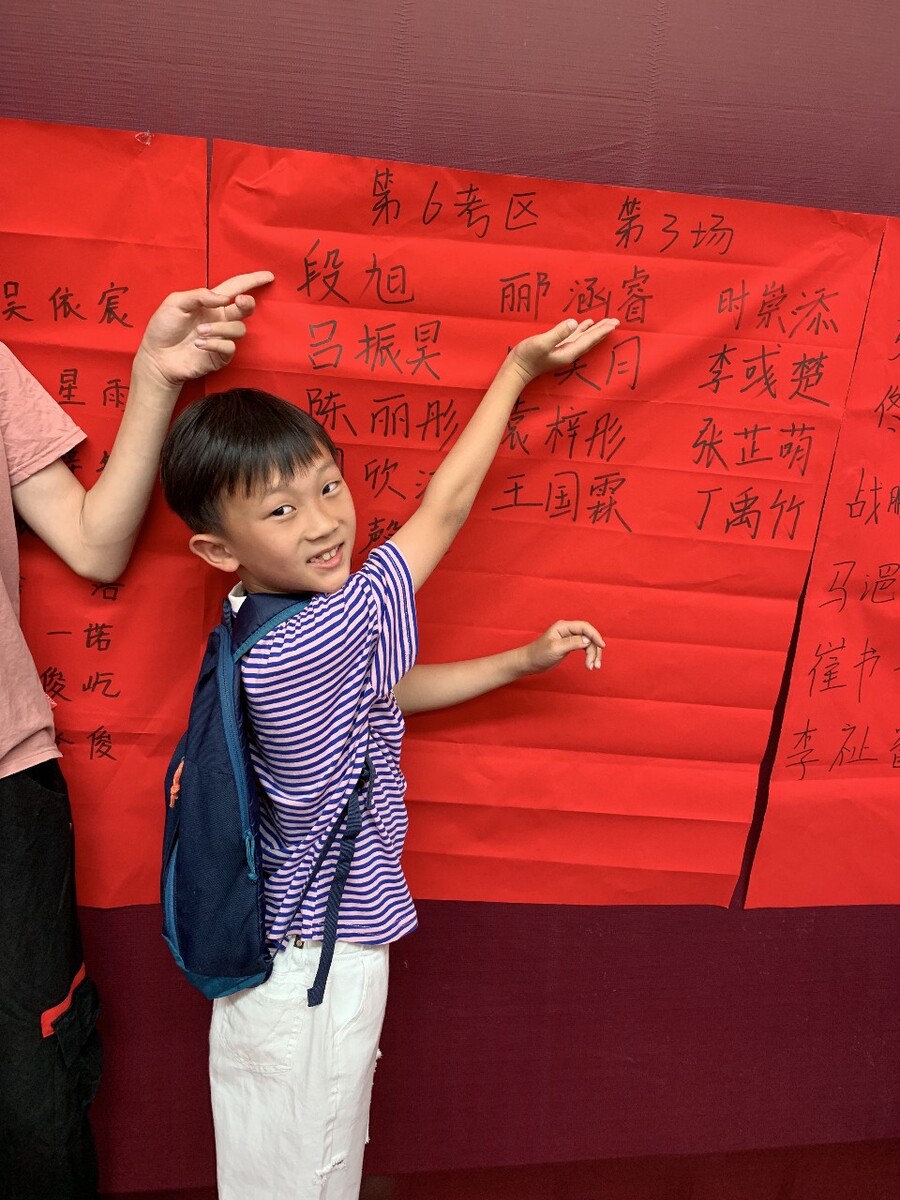 吴依宸
星雨
一诺
俊屹
俊
第6考区 第3场
段旭 郦涵睿 时崇添
吕振昊 月 李彧楚
陈丽彤 袁梓彤 张芷萌
欣 王国霖 丁禹竹
马浥
崔书
李祉